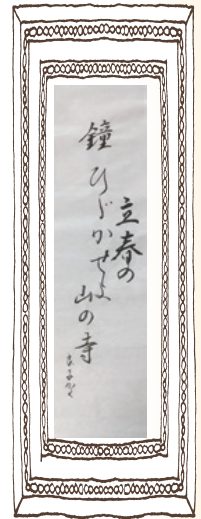 立春の
鐘ひゞかせよ
山の寺